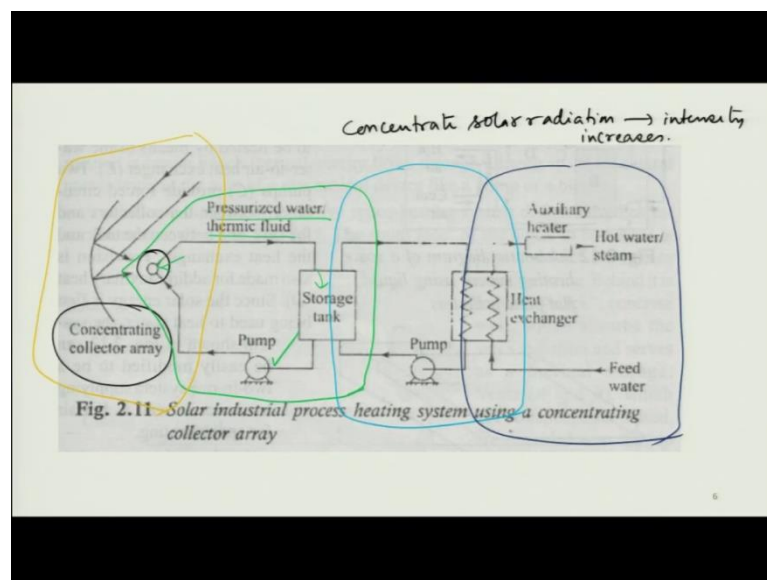 Concentrate solar radiation → intensity
increases.
Pressurized water/
thermic fluid
Auxiliary
heater
Hot water/
steam
Storage
tank
Heat
exchanger
Concentrating
collector array
Pump
Pump
Feed
water
Fig. 2.11 Solar industrial process heating system using a concentrating
collector array
6